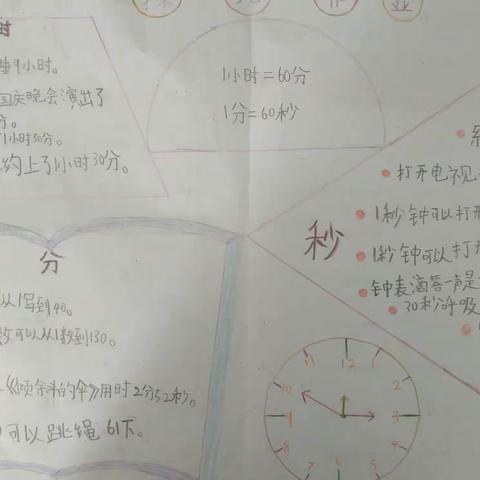 时
睡9小时。
国庆晚会演出了
分。
1小时30分。
约上了1小时30分。
1小时=60分
1分=60秒
秒
打开电视
1秒钟可以打开
1秒钟可以打开
钟表滴答一声是
30秒呼吸
分
从1写到40。
可以从1数到130。
《倾斜的伞》用时2分52秒。
可以跳绳61下。
11 12 1
10 2
9 3
8 4
7 6 5